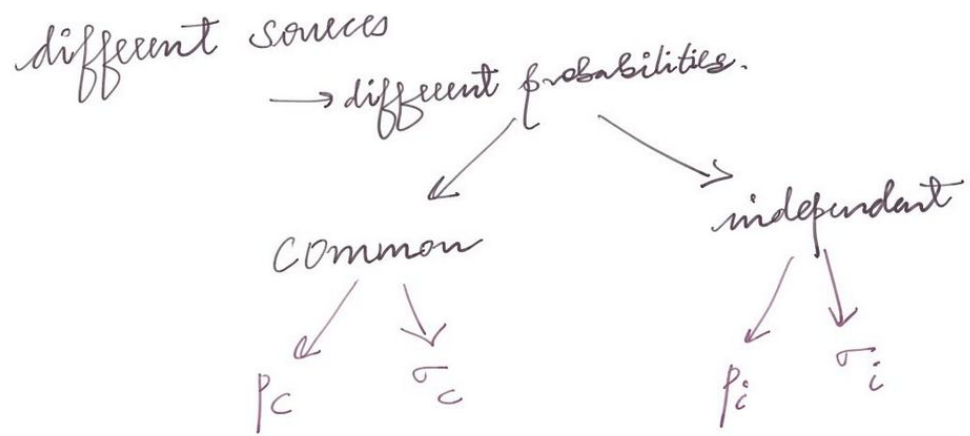 different sources
→ different probabilities.
common
independent
pc σc
pi σi